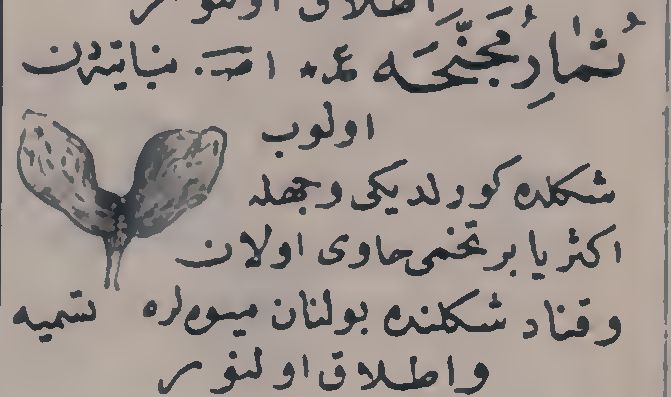 اطلاق اولنور
ثُمارِ مُجَنَّحَه ع. ا. نباتیدن
اولوب
شکلده کورلدیکی وجهله
اکثریا بر تخمی حاوی اولان
وقناد شکلنده بولنان میوه‌لره تسمیه
واطلاق اولنور